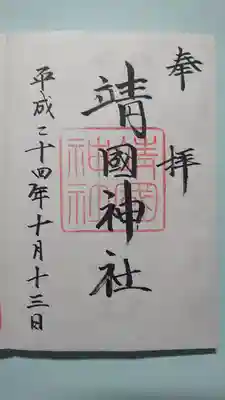 奉拝
靖國神社
平成二十四年十月十三日
靖國神社